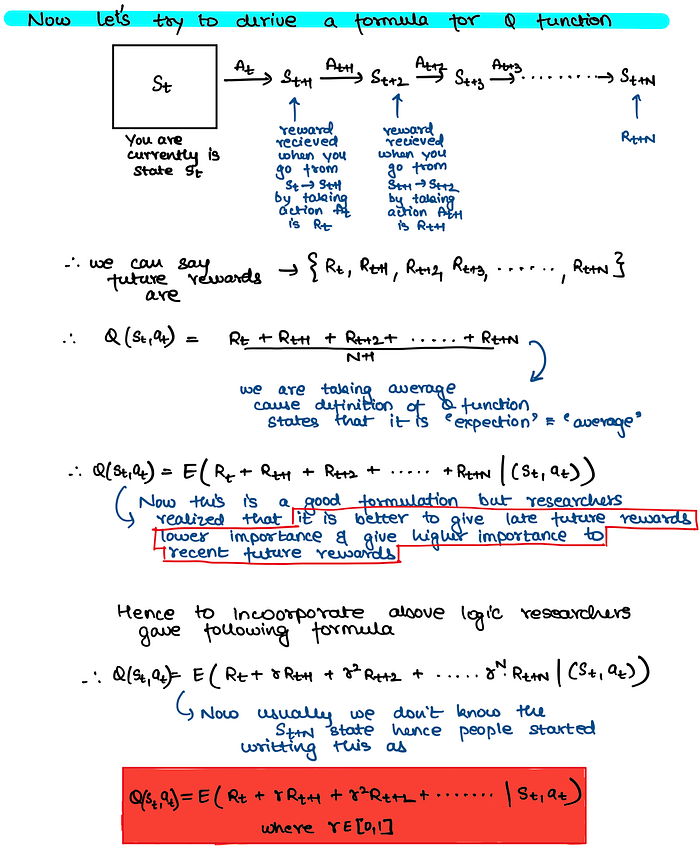 Now let's try to derive a formula for Q function
St At → St+1 At+1 → St+2 At+2 → St+3 At+3 → ........ → St+N
You are
currently is
state St
reward
recieved
when you
go from
St → St+1
by taking
action At
is Rt
reward
recieved
when you
go from
St+1 → St+2
by taking
action At+1
is Rt+1
Rt+N
∴ we can say
future rewards
are
→ { Rt, Rt+1, Rt+2, Rt+3, ......, Rt+N }
∴ Q(st,at) = Rt + Rt+1 + Rt+2 + ..... + Rt+N
N+1
we are taking average
cause definition of Q function
states that it is "expection" = "average"
∴ Q(st,at) = E( Rt + Rt+1 + Rt+2 + ..... + Rt+N | (st, at) )
Now this is a good formulation but researchers
realized that it is better to give late future rewards
lower importance & give higher importance to
recent future rewards
Hence to incoorporate above logic researchers
gave following formula
∴ Q(st,at) = E( Rt + γRt+1 + γ²Rt+2 + ..... γᴺ.Rt+N | (st, at) )
Now usually we don't know the
St+N state hence people started
writting this as
Q(st,at) = E( Rt + γRt+1 + γ²Rt+2 + ....... | st, at )
where γ ∈ [0,1]